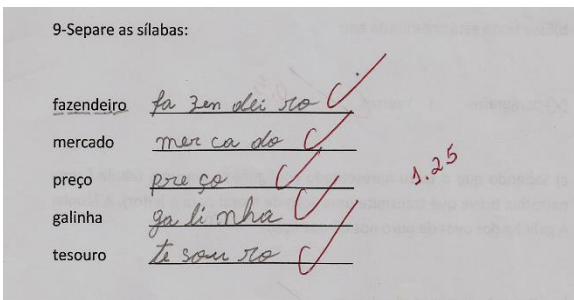 9-Separe as sílabas:
fazendeiro fa zen dei ro
mercado mer ca do
preço pre ço
galinha ga li nha
tesouro te sou ro
1.25